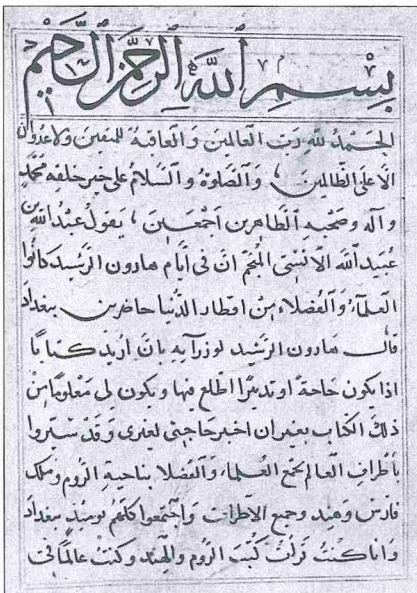 بِسْمِ ٱللَّهِ ٱلرَّحْمَٰنِ ٱلرَّحِيْمِ
الحَمْدُ للهِ رَبِّ العَالمينَ وَالعَاقبَةُ للمتقينَ وَلاعُدوانَ
الّا عَلَى الظّالِمينَ، وَالصَّلوٰةُ وَالسَّلامُ عَلى خير خلقه محمّدٍ
وَآله وصَحْبه الطّاهرين اَجْمَعينَ، يقولُ عَبْدُ اللهِ بن
عُبيد اللهِ الاَنسَتى المنجّم انّ فى أيّام هَارون الرّشيد كانُوا
العلمآءُ وَالفُضلاء مِنْ اقطار الدّنيا حاضرين ببغدادَ
قالَ هَارون الرّشيد لوزرآيه بانّ اُريد كتابًا
اذا يكون حاحة او تدبيرًا اطّلع فيها ويكون لى مَعْلومًا من
ذلكَ الكتاب بغير ان اخبر حَاجتى لغيرى وَقَدْ سَيّروا
بأطراف العالم لجمع العُلماء وَالفضلا بناحية الرُّوم وملك
فارسَ وَهِند وجميع الاَطراف وَاجْتمعوا كلّهم يومئذٍ ببغداد
وَانا كنتُ قرأتُ كتبَ الرُّوم وَالهِند وكنتُ عالمًا فى